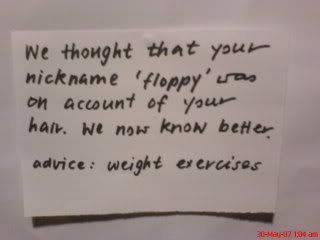 We thought that your
nickname 'floppy' was
on account of your
hair. We now know better.
advice: weight exercises
30-May-07 1:04 am